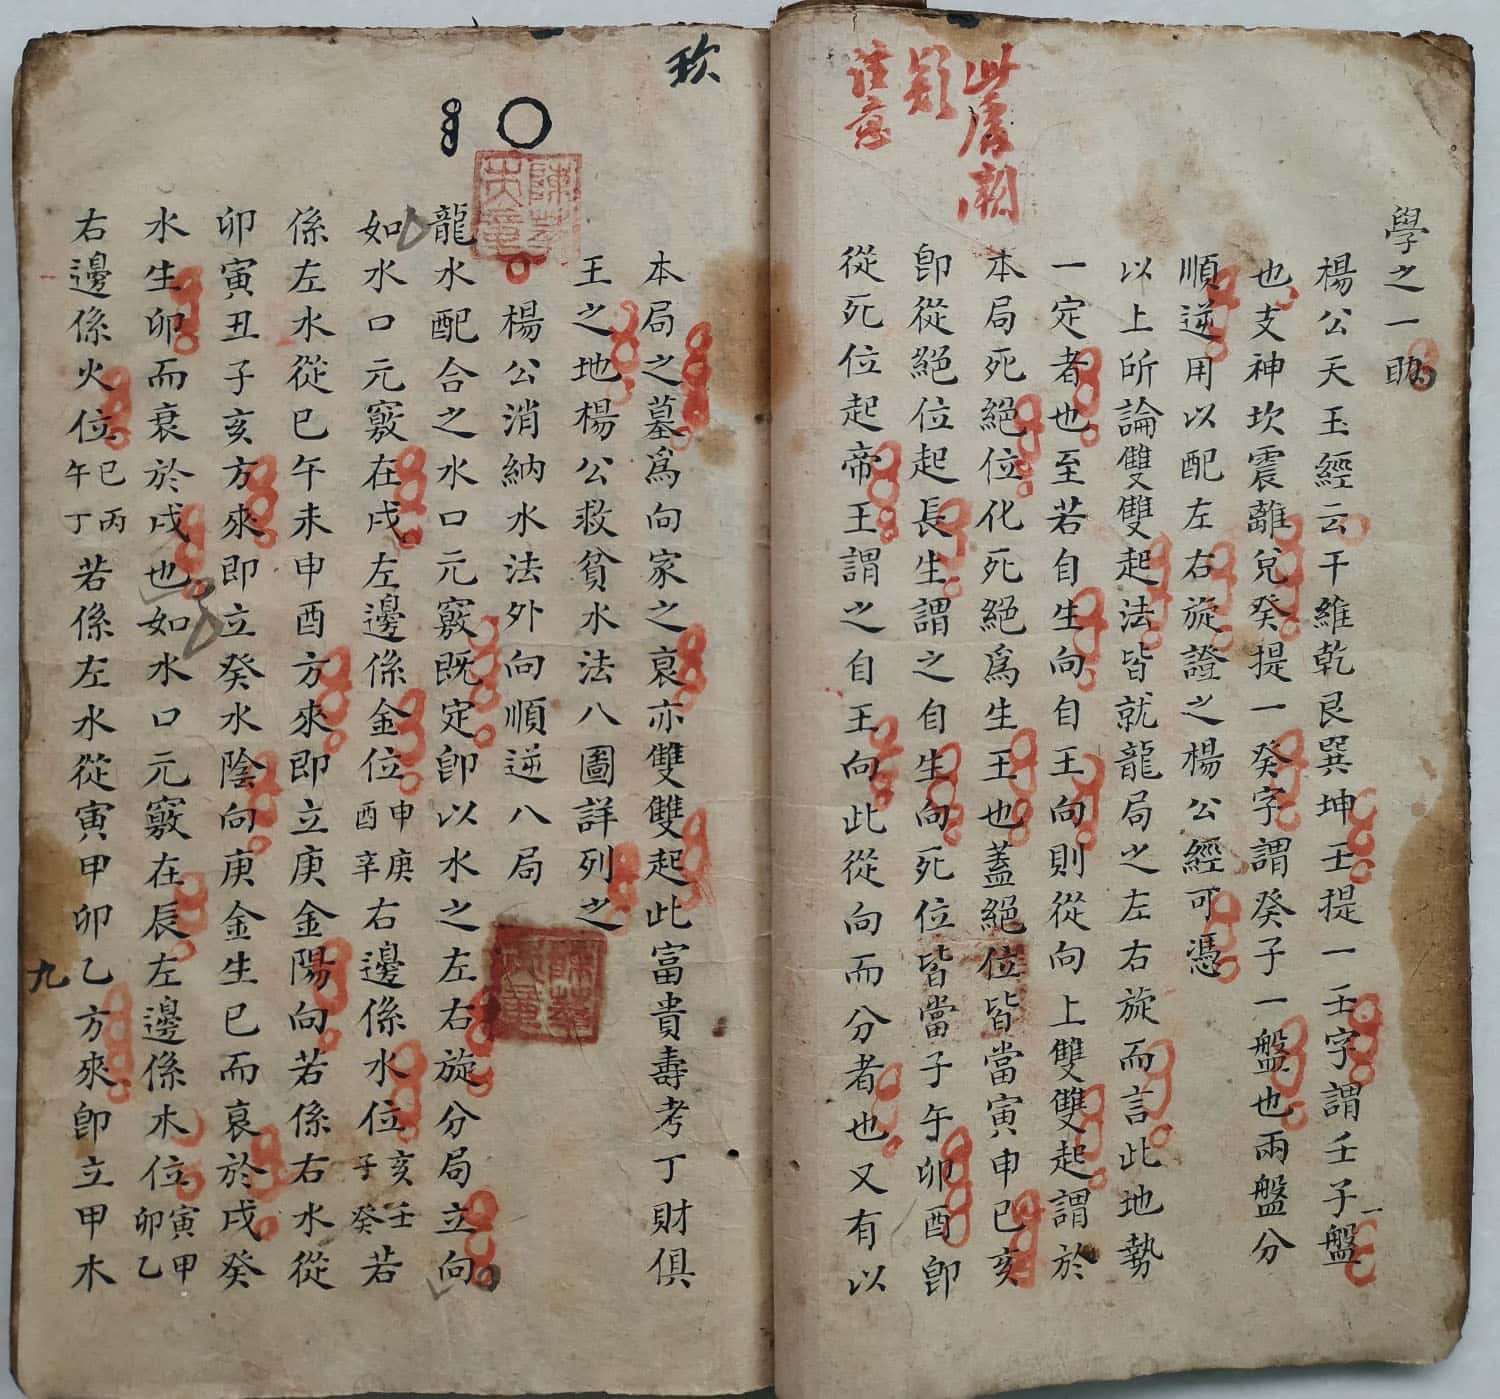 學之一助
楊公天玉經云干維乾艮巽坤壬提一壬字謂壬子一盤
也支神坎震離兌癸提一癸字謂癸子一盤也兩盤分
順逆用以配左右旋證之楊公經可憑
以上所論雙雙起法皆就龍局之左右旋而言此地勢
一定者也至若自生向自王向則從向上雙雙起謂於
本局死絕位化死絕為生王也蓋絕位皆當寅申巳亥
卽從絕位起長生謂之自生向死位皆當子午卯酉卽
從死位起帝王謂之自王向此從向而分者也又有以
注意
疑
本局之墓為向家之衰亦雙雙起此富貴壽考丁財俱
王之地楊公救貧水法八圖詳列之
楊公消納水法外向順逆八局
龍水配合之水口元竅既定卽以水之左右旋分局立向
如水口元竅在戌左邊係金位申庚酉辛右邊係水位亥壬子癸若
係左水從巳午未申酉方來即立庚金陽向若係右水從
卯寅丑子亥方來即立癸水陰向庚金生巳而衰於戌癸
水生卯而衰於戌也如水口元竅在辰左邊係木位寅甲卯乙
右邊係火位巳丙午丁若係左水從寅甲卯乙方來卽立甲木
九